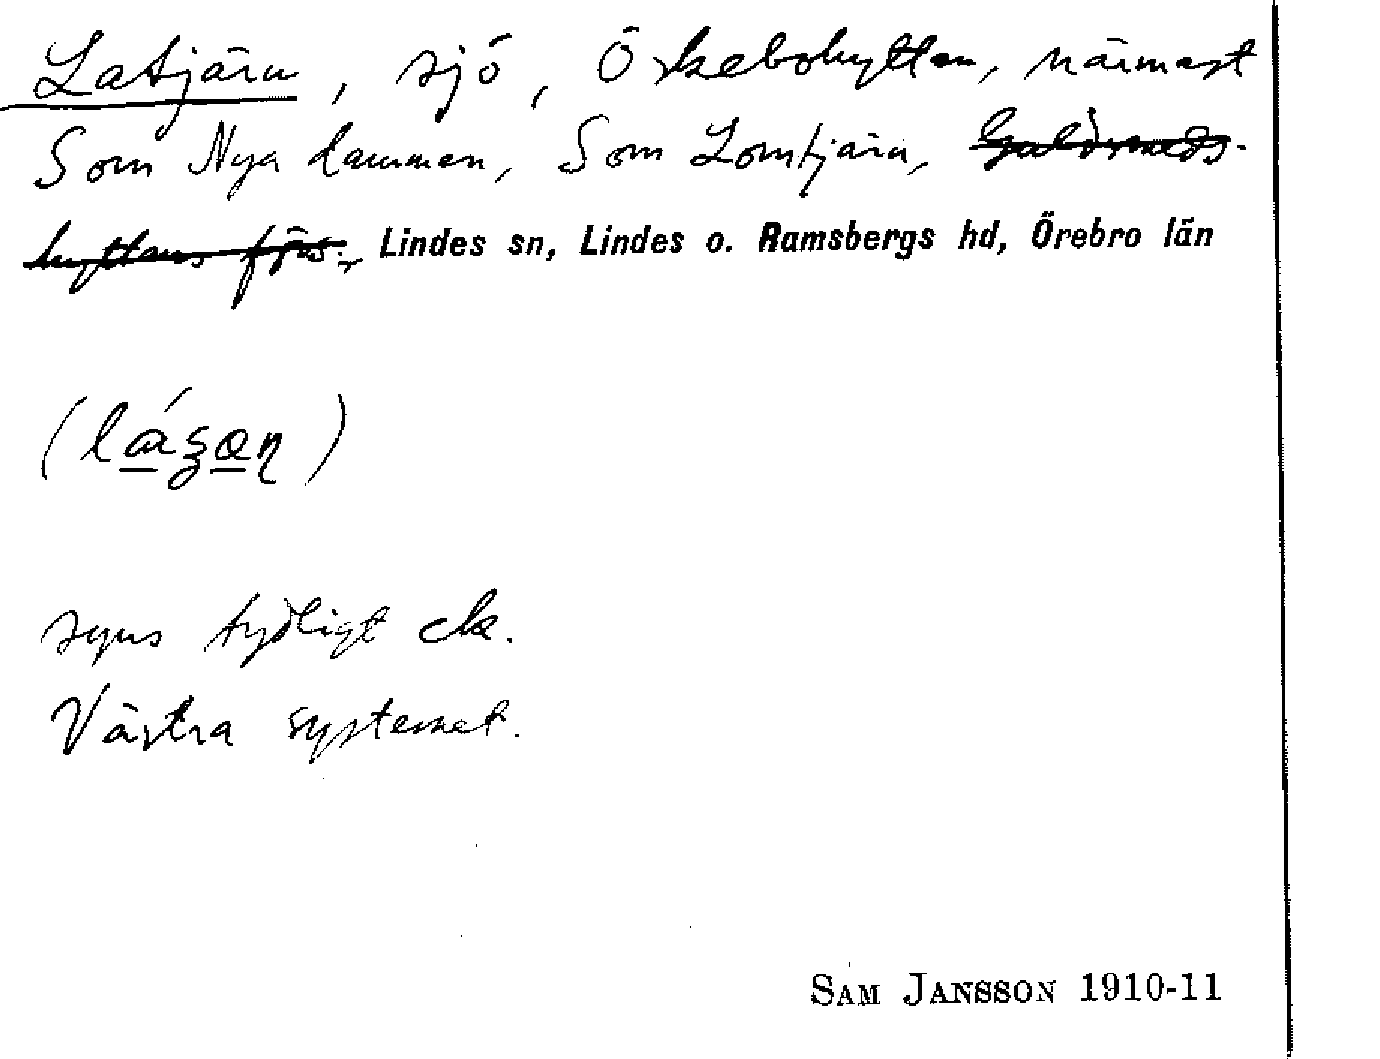 Latjärn, sjö, Öskebohyttan, närmast
Som Nya dammen, Som Lomtjärn, Guldsmeds-
hyttans förs., Lindes sn, Lindes o. Ramsbergs hd, Örebro län
syns tydligt ck.
Västra systemet.
SAM JANSSON 1910-11